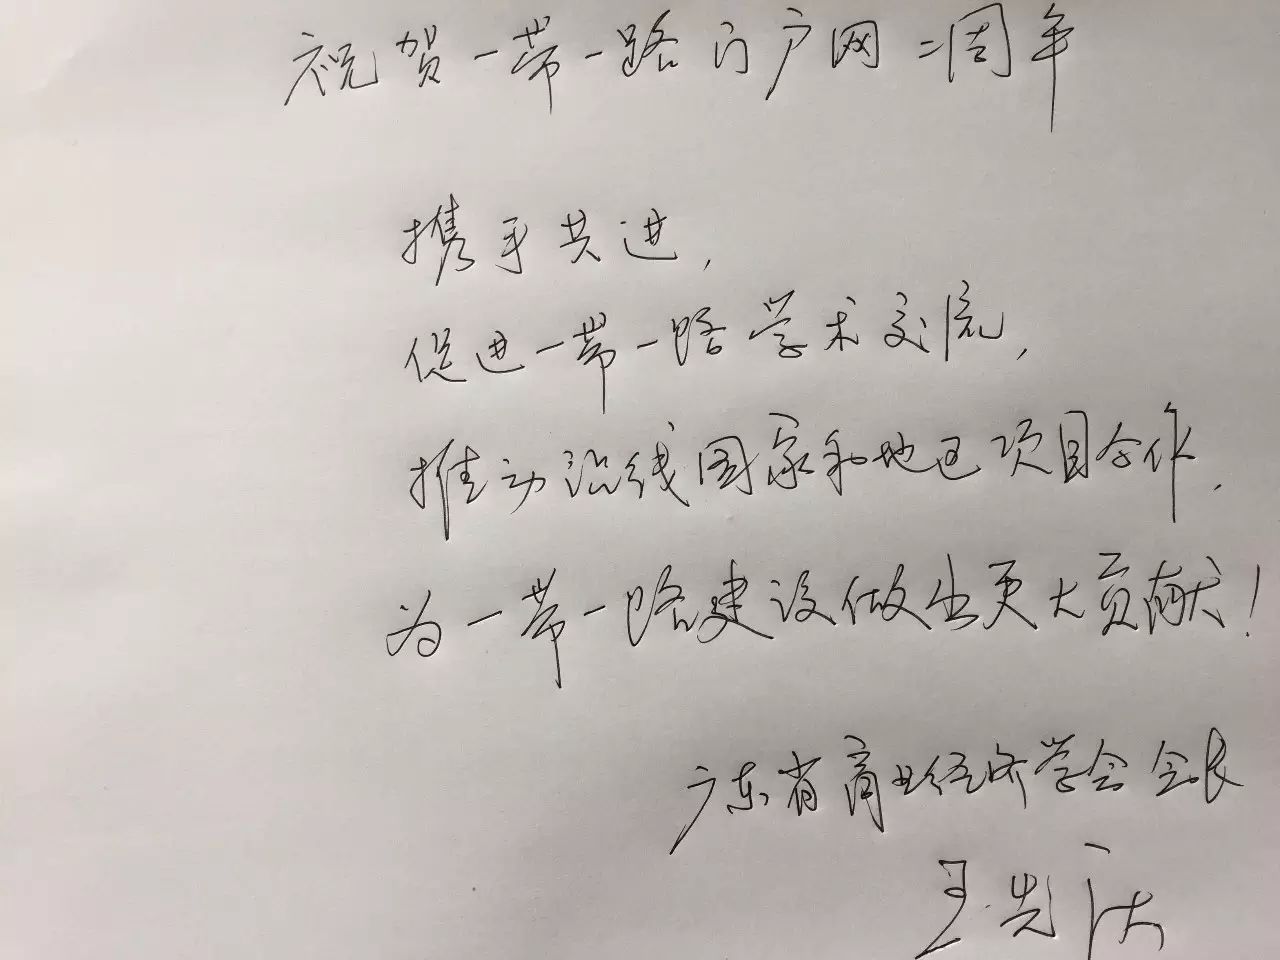 祝贺一带一路门户网二周年
携手共进,
促进一带一路学术交流,
推动沿线国家和地区项目合作.
为一带一路建设做出更大贡献!
广东省商业经济学会会长
王先庆